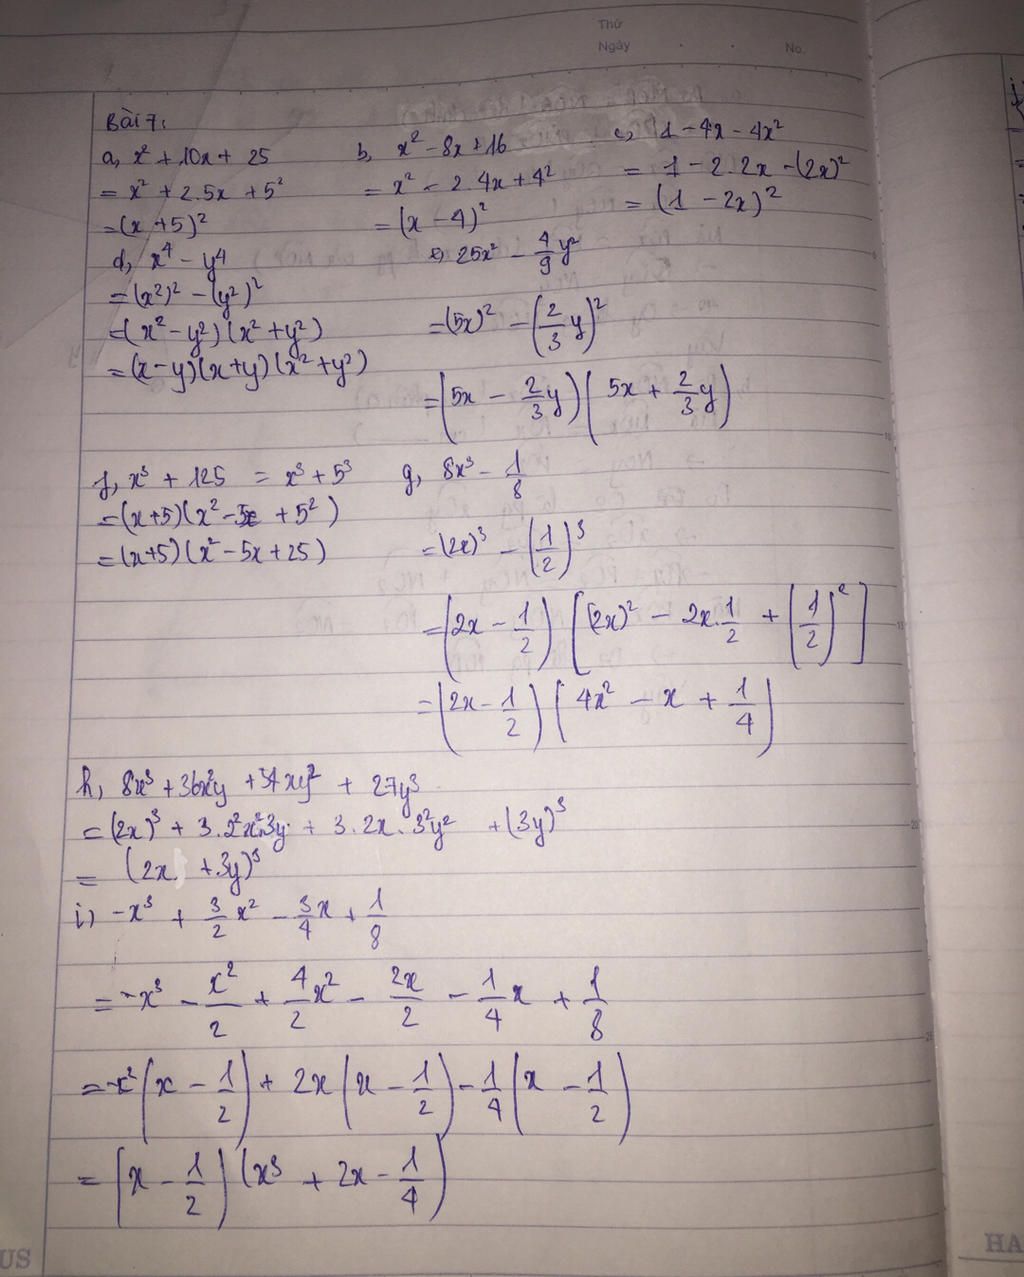 Thứ
Ngày . . No.
Bài 7:
a, x² + 10x + 25
= x² + 2.5x + 5²
= (x + 5)²
b, x² - 8x + 16
= x² - 2.4x + 4²
= (x - 4)²
c, 1 - 4x - 4x²
= 1 - 2.2x - (2x)²
= (1 - 2x)²
d, x⁴ - y⁴
= (x²)² - (y²)²
= (x² - y²)(x² + y²)
= (x - y)(x + y)(x² + y²)
e, 25x² - 4/9 y²
= (5x)² - (2/3 y)²
= (5x - 2/3 y)(5x + 2/3 y)
f, x³ + 125 = x³ + 5³
= (x+5)(x² - 5x + 5²)
= (x+5)(x² - 5x + 25)
g, 8x³ - 1/8
= (2x)³ - (1/2)³
= (2x - 1/2)[(2x)² - 2x.1/2 + (1/2)²]
= (2x - 1/2)(4x² - x + 1/4)
h, 8x³ + 36x²y + 54xy² + 27y³
= (2x)³ + 3.2²x².3y + 3.2x.3²y² + (3y)³
= (2x + 3y)³
i, -x³ + 3/2 x² - 3/4 x + 1/8
= -x³ - x²/2 + 4/2 x² - 2x/2 - 1/4 x + 1/8
= -x²(x - 1/2) + 2x(x - 1/2) - 1/4(x - 1/2)
= (x - 1/2)(x³ + 2x - 1/4)
US
HA